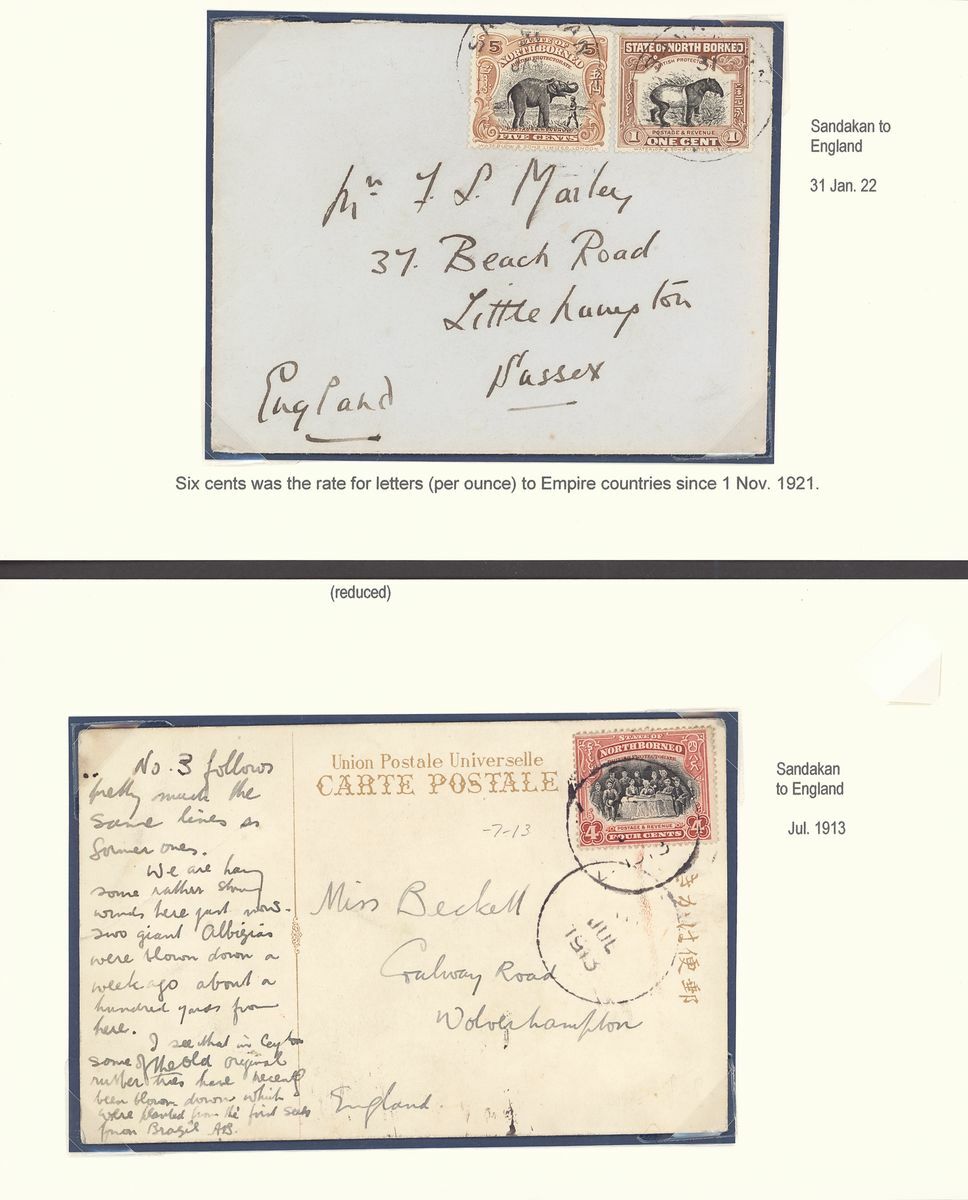 STATE OF
NORTH BORNEO
5 5
POSTAGE & REVENUE
FIVE CENTS
JAN
STATE OF NORTH BORNEO
BRITISH PROTECTORATE
31
1 POSTAGE & REVENUE 1
ONE CENT
Sandakan to
England
31 Jan. 22
37. Beach Road
Littlehampton
Sussex
England
Six cents was the rate for letters (per ounce) to Empire countries since 1 Nov. 1921.
(reduced)
No. 3 follows
pretty much the
same lines as
former ones.
We are having
some rather strong
winds here just now.
Two giant Albizias
were blown down a
week ago about a
hundred yards from
here.
I see that in Ceylon
some of the old original
rubber trees have recently
been blown down which
were planted from the first seeds
from Brazil
Union Postale Universelle
CARTE POSTALE
STATE OF
NORTH BORNEO
4 POSTAGE & REVENUE 4
FOUR CENTS
-7-13
JUL
1913
Miss Beckett
Galway Road
Wolverhampton
England.
きかは便郵
Sandakan
to England
Jul. 1913